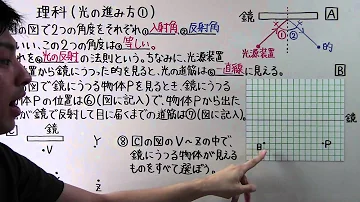 理科(光の進み方①)
の図で2つの角度をそれぞれ①入射角、②反射角
いい、この2つの角度は③等しい。
れを④光の反射の法則という。ちなみに、光源装置
置から鏡にうつった的を見ると、光の筋は⑤一直線に見える。
の図で鏡にうつる物体Pを見るとき、鏡にうつる
体Pの位置は⑥(図に記入)で、物体Pから出た
が鏡で反射して目に届くまでの道筋は⑦(図に記入)。
⑧Cの図のV~Zの中で、
鏡にうつる物体が見える
ものをすべて選ぼう。
鏡
A
①
②
光源装置
的
B
鏡
目
P
鏡
V
Y
Z